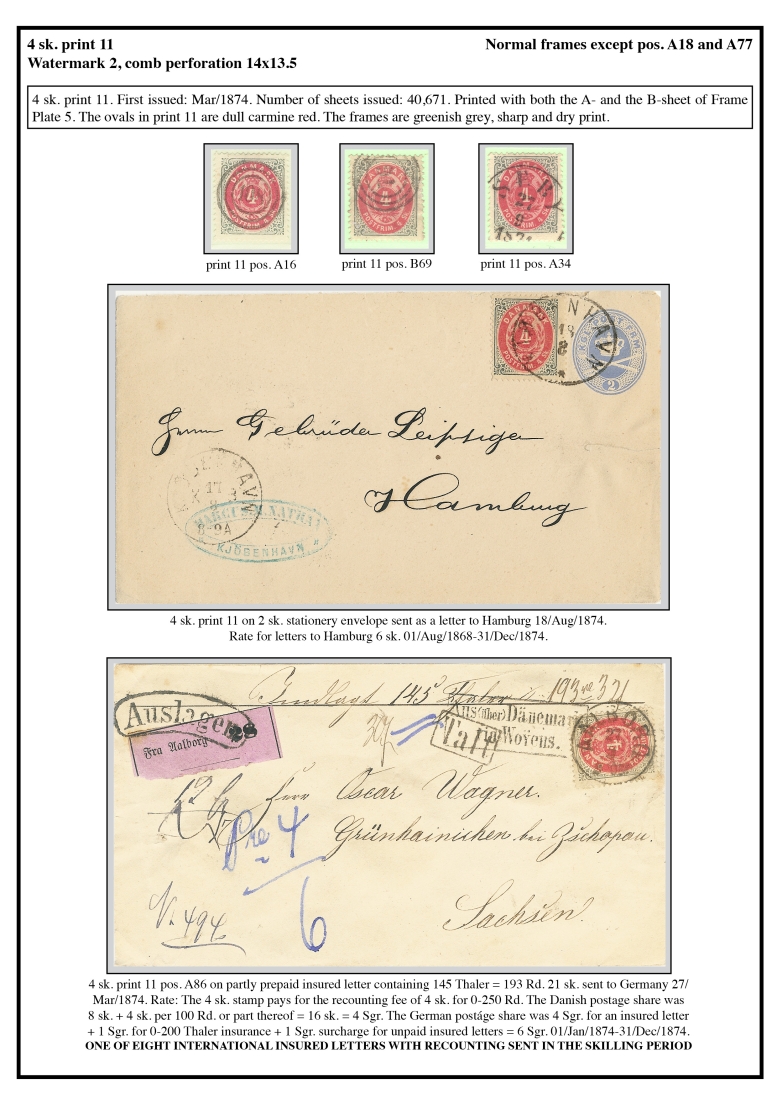 4 sk. print 11
Normal frames except pos. A18 and A77
Watermark 2, comb perforation 14x13.5
4 sk. print 11. First issued: Mar/1874. Number of sheets issued: 40,671. Printed with both the A- and the B-sheet of Frame
Plate 5. The ovals in print 11 are dull carmine red. The frames are greenish grey, sharp and dry print.
DANMARK 4 POSTFRIM. 4 SK.
print 11 pos. A16
print 11 pos. B69
print 11 pos. A34
DANMARK 4 POSTFRIM. 4 SK.
18
8
2
Herrn Gebrüder Leipziger
Hamburg
KJØBENHAVN
17
8
8-9A
MARCUS M. NATHAN
KJÖBENHAVN
4 sk. print 11 on 2 sk. stationery envelope sent as a letter to Hamburg 18/Aug/1874.
Rate for letters to Hamburg 6 sk. 01/Aug/1868-31/Dec/1874.
Indlagt 145 Thaler 193 21
Auslagen
28
Fra Aalborg
Aus (über) Dänemark
in Woyens.
AALBORG
27
Herr Oscar Wagner.
Grünhainichen bei Zschopau.
4
6
N. 494
Sachsen.
4 sk. print 11 pos. A86 on partly prepaid insured letter containing 145 Thaler = 193 Rd. 21 sk. sent to Germany 27/
Mar/1874. Rate: The 4 sk. stamp pays for the recounting fee of 4 sk. for 0-250 Rd. The Danish postage share was
8 sk. + 4 sk. per 100 Rd. or part thereof = 16 sk. = 4 Sgr. The German postage share was 4 Sgr. for an insured letter
+ 1 Sgr. for 0-200 Thaler insurance + 1 Sgr. surcharge for unpaid insured letters = 6 Sgr. 01/Jan/1874-31/Dec/1874.
ONE OF EIGHT INTERNATIONAL INSURED LETTERS WITH RECOUNTING SENT IN THE SKILLING PERIOD